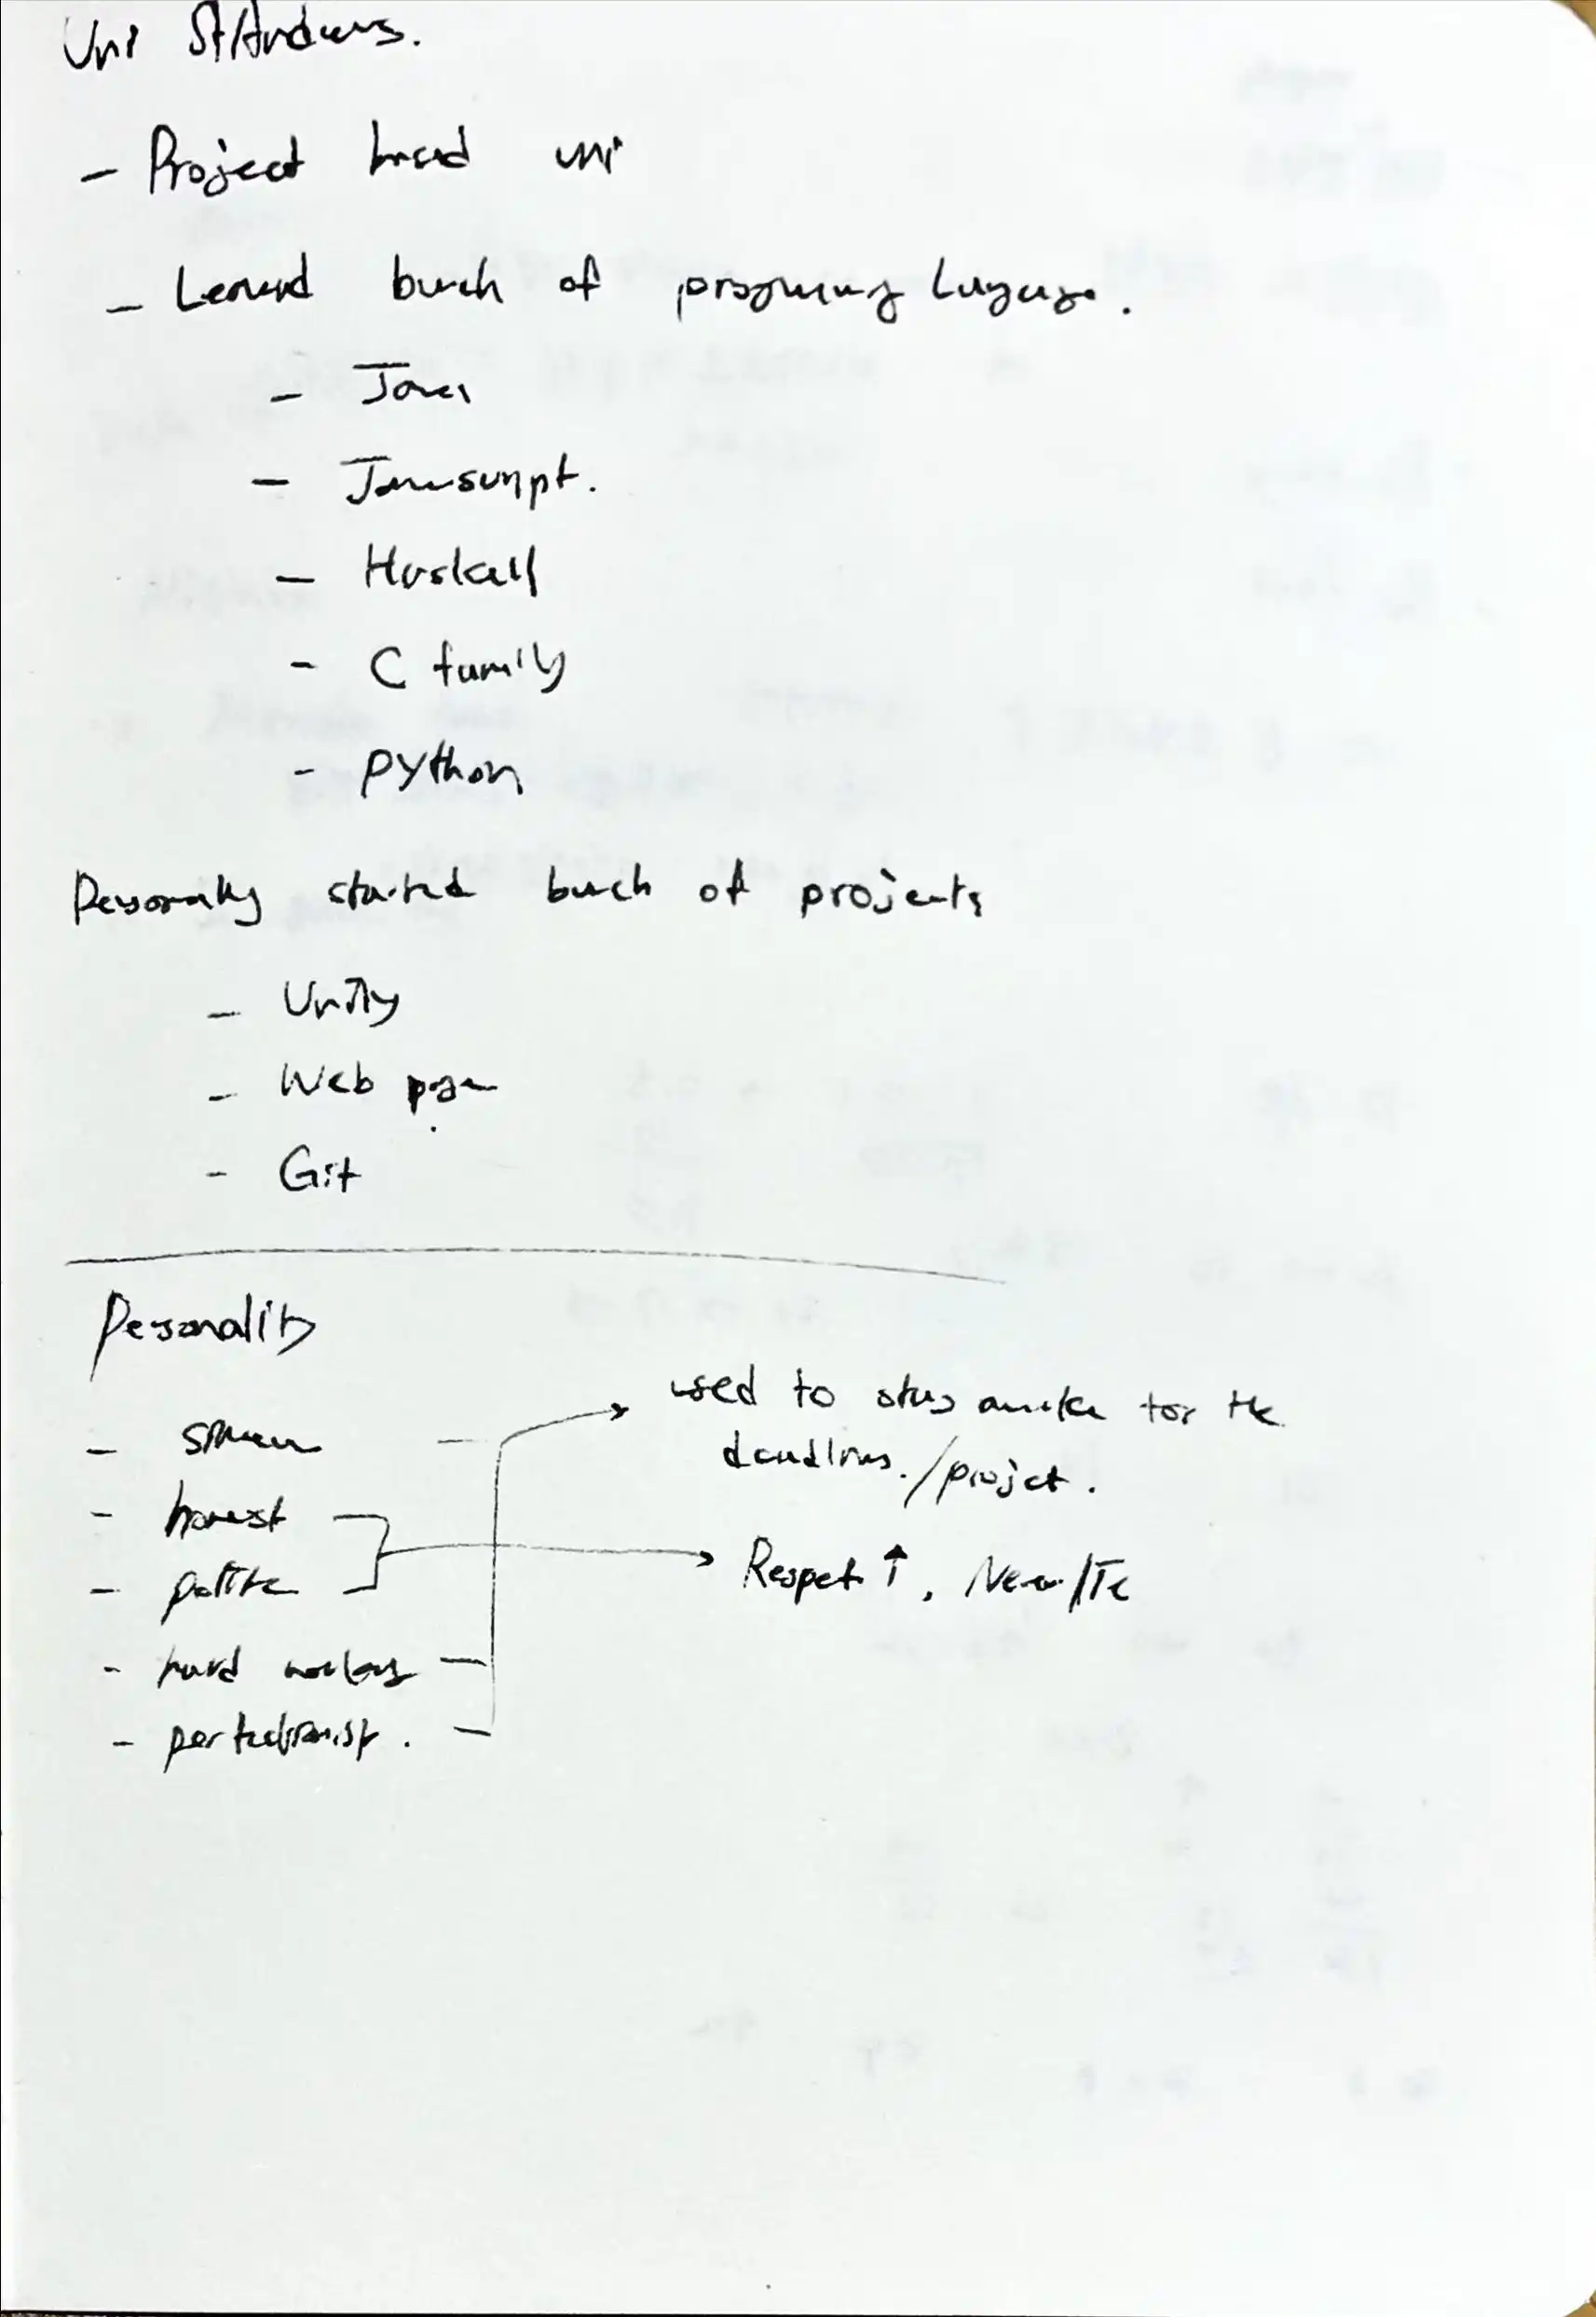 Uni St Andrews.
- Project based uni
- Learned bunch of programming language.
- Java
- Javascript.
- Haskell
- C family
- Python
Personally started bunch of projects
- Unity
- Web page
- Git
Personality
- sincere
- honest
- polite
- hard working
- perfectionist.
used to stay awake for the
deadlines. / project.
Respect ↑,